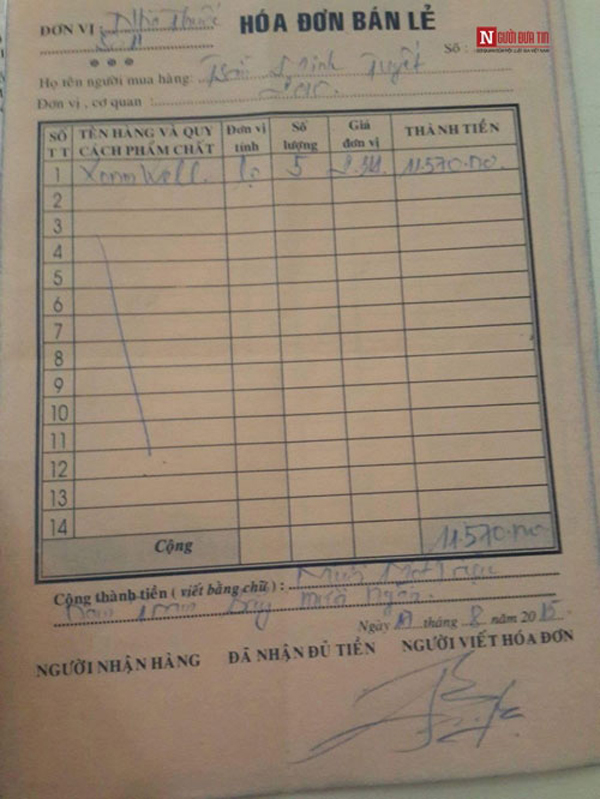 NGƯỜI ĐƯA TIN
ĐƠN VỊ : Nhà Thuốc
HÓA ĐƠN BÁN LẺ
Số :
Họ tên người mua hàng: Tuyết
Đơn vị , cơ quan :
SỐ TT TÊN HÀNG VÀ QUY CÁCH PHẨM CHẤT Đơn vị tính Số lượng Giá đơn vị THÀNH TIỀN
1 lọ 5 11.570.000
2
3
4
5
6
7
8
9
10
11
12
13
14
Cộng 11.570.000
Cộng thành tiền ( viết bằng chữ ) : Mười Một triệu
Năm Trăm bảy mươi Ngàn.
Ngày tháng 8 năm 2015
NGƯỜI NHẬN HÀNG ĐÃ NHẬN ĐỦ TIỀN NGƯỜI VIẾT HÓA ĐƠN